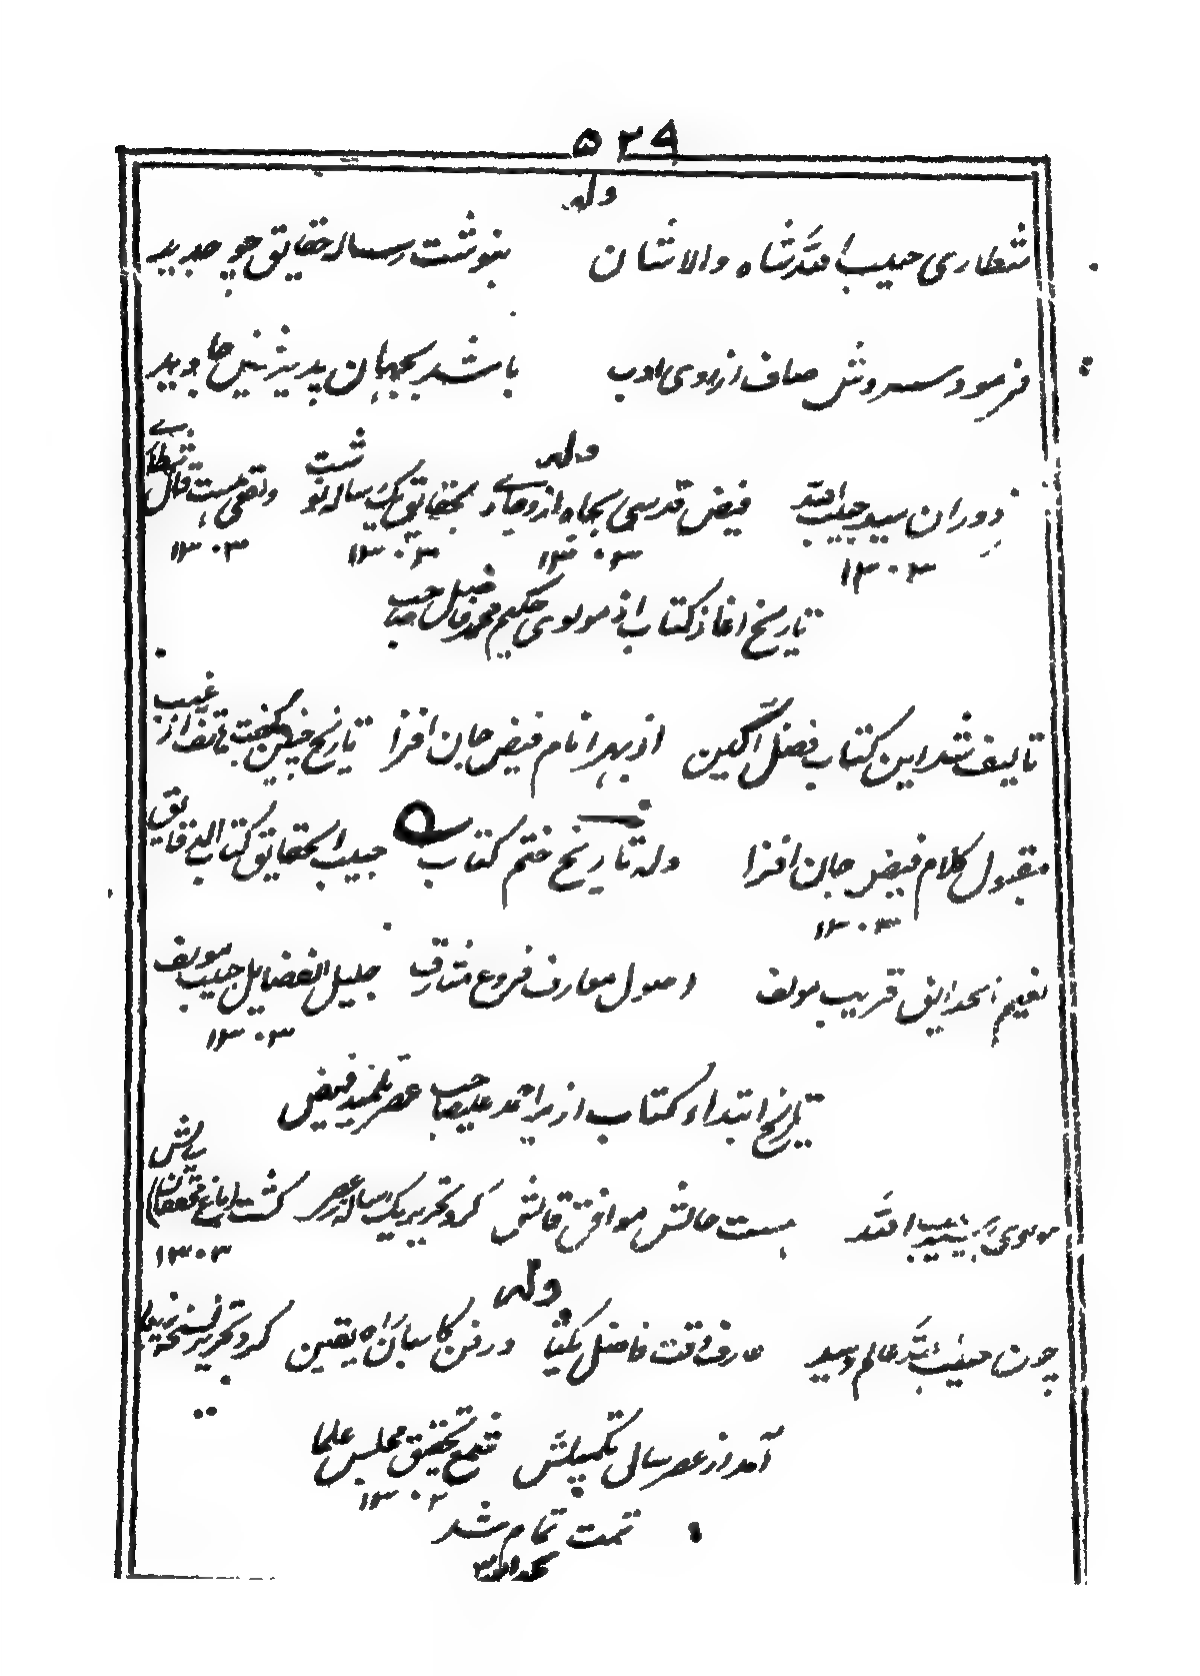 ۵۲۹
وله
شطاری حبیب الله شاه والاشان بنوشت رساله حقایق چو جدید
فرمود سروش صاف از روی ادب باشد بجهان پدیر نیز جاوید
وله
ز دوران سید حبیب الله فیض قدسی بجاه از وجاے بحقایق یک رساله نوشت وقف هست قال شطاری
۱۳۰۳ ۱۳۰۳ ۱۳۰۳ ۱۳۰۳
تاریخ اغاز کتاب از مولوی حکیم محمد فاضل صاحب
تالیف شد این کتاب فضل آگین از بهر انام فیض جان افزا تاریخ چنین گفت هاتف از غیب
مقبول کلام فیض جان افزا وله تاریخ ختم کتاب حبیب الحقایق کتاب الدقایق
۱۳۰۳
نعیم الحدایق قریب مولف اصول معارف فروع مشارق جلیل الفضایل حبیب مولف
۱۳۰۳
تاریخ ابتداء کتاب از میر احمد علیصاحب عصر تلمیذ فیض
مولوی سید حبیب الله هست حالش موافق قالش کرد تحریر یک رساله عصر گشت باغ محققان سالش
۱۳۰۳
وله
چون حبیب الله عالم و سید عارف وقت فاضل یکتا در فن کاسبان راه یقین کرد تحریر نسخه زیبا
آمد از عصر سال تکمیلش شمع تحقیق مجلس علما
۱۳۰۳
تمت تمام شد